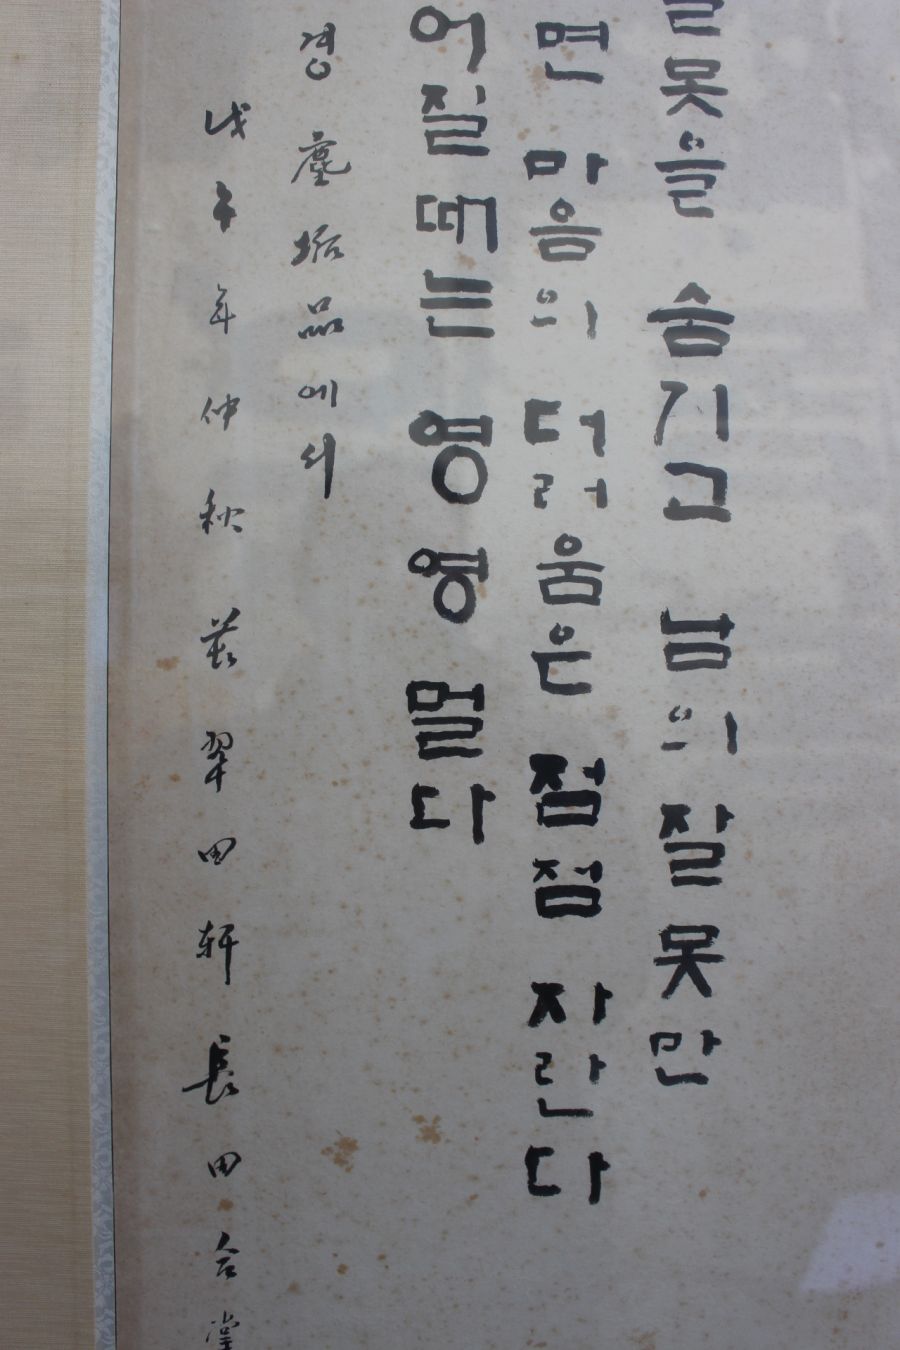 잘못을 숨기고 남의 잘못만
면 마음의 더러움은 점점 자란다
어질 때는 영영 멀다
경 塵垢品에서
戊午年仲秋 翠田軒長田合堂